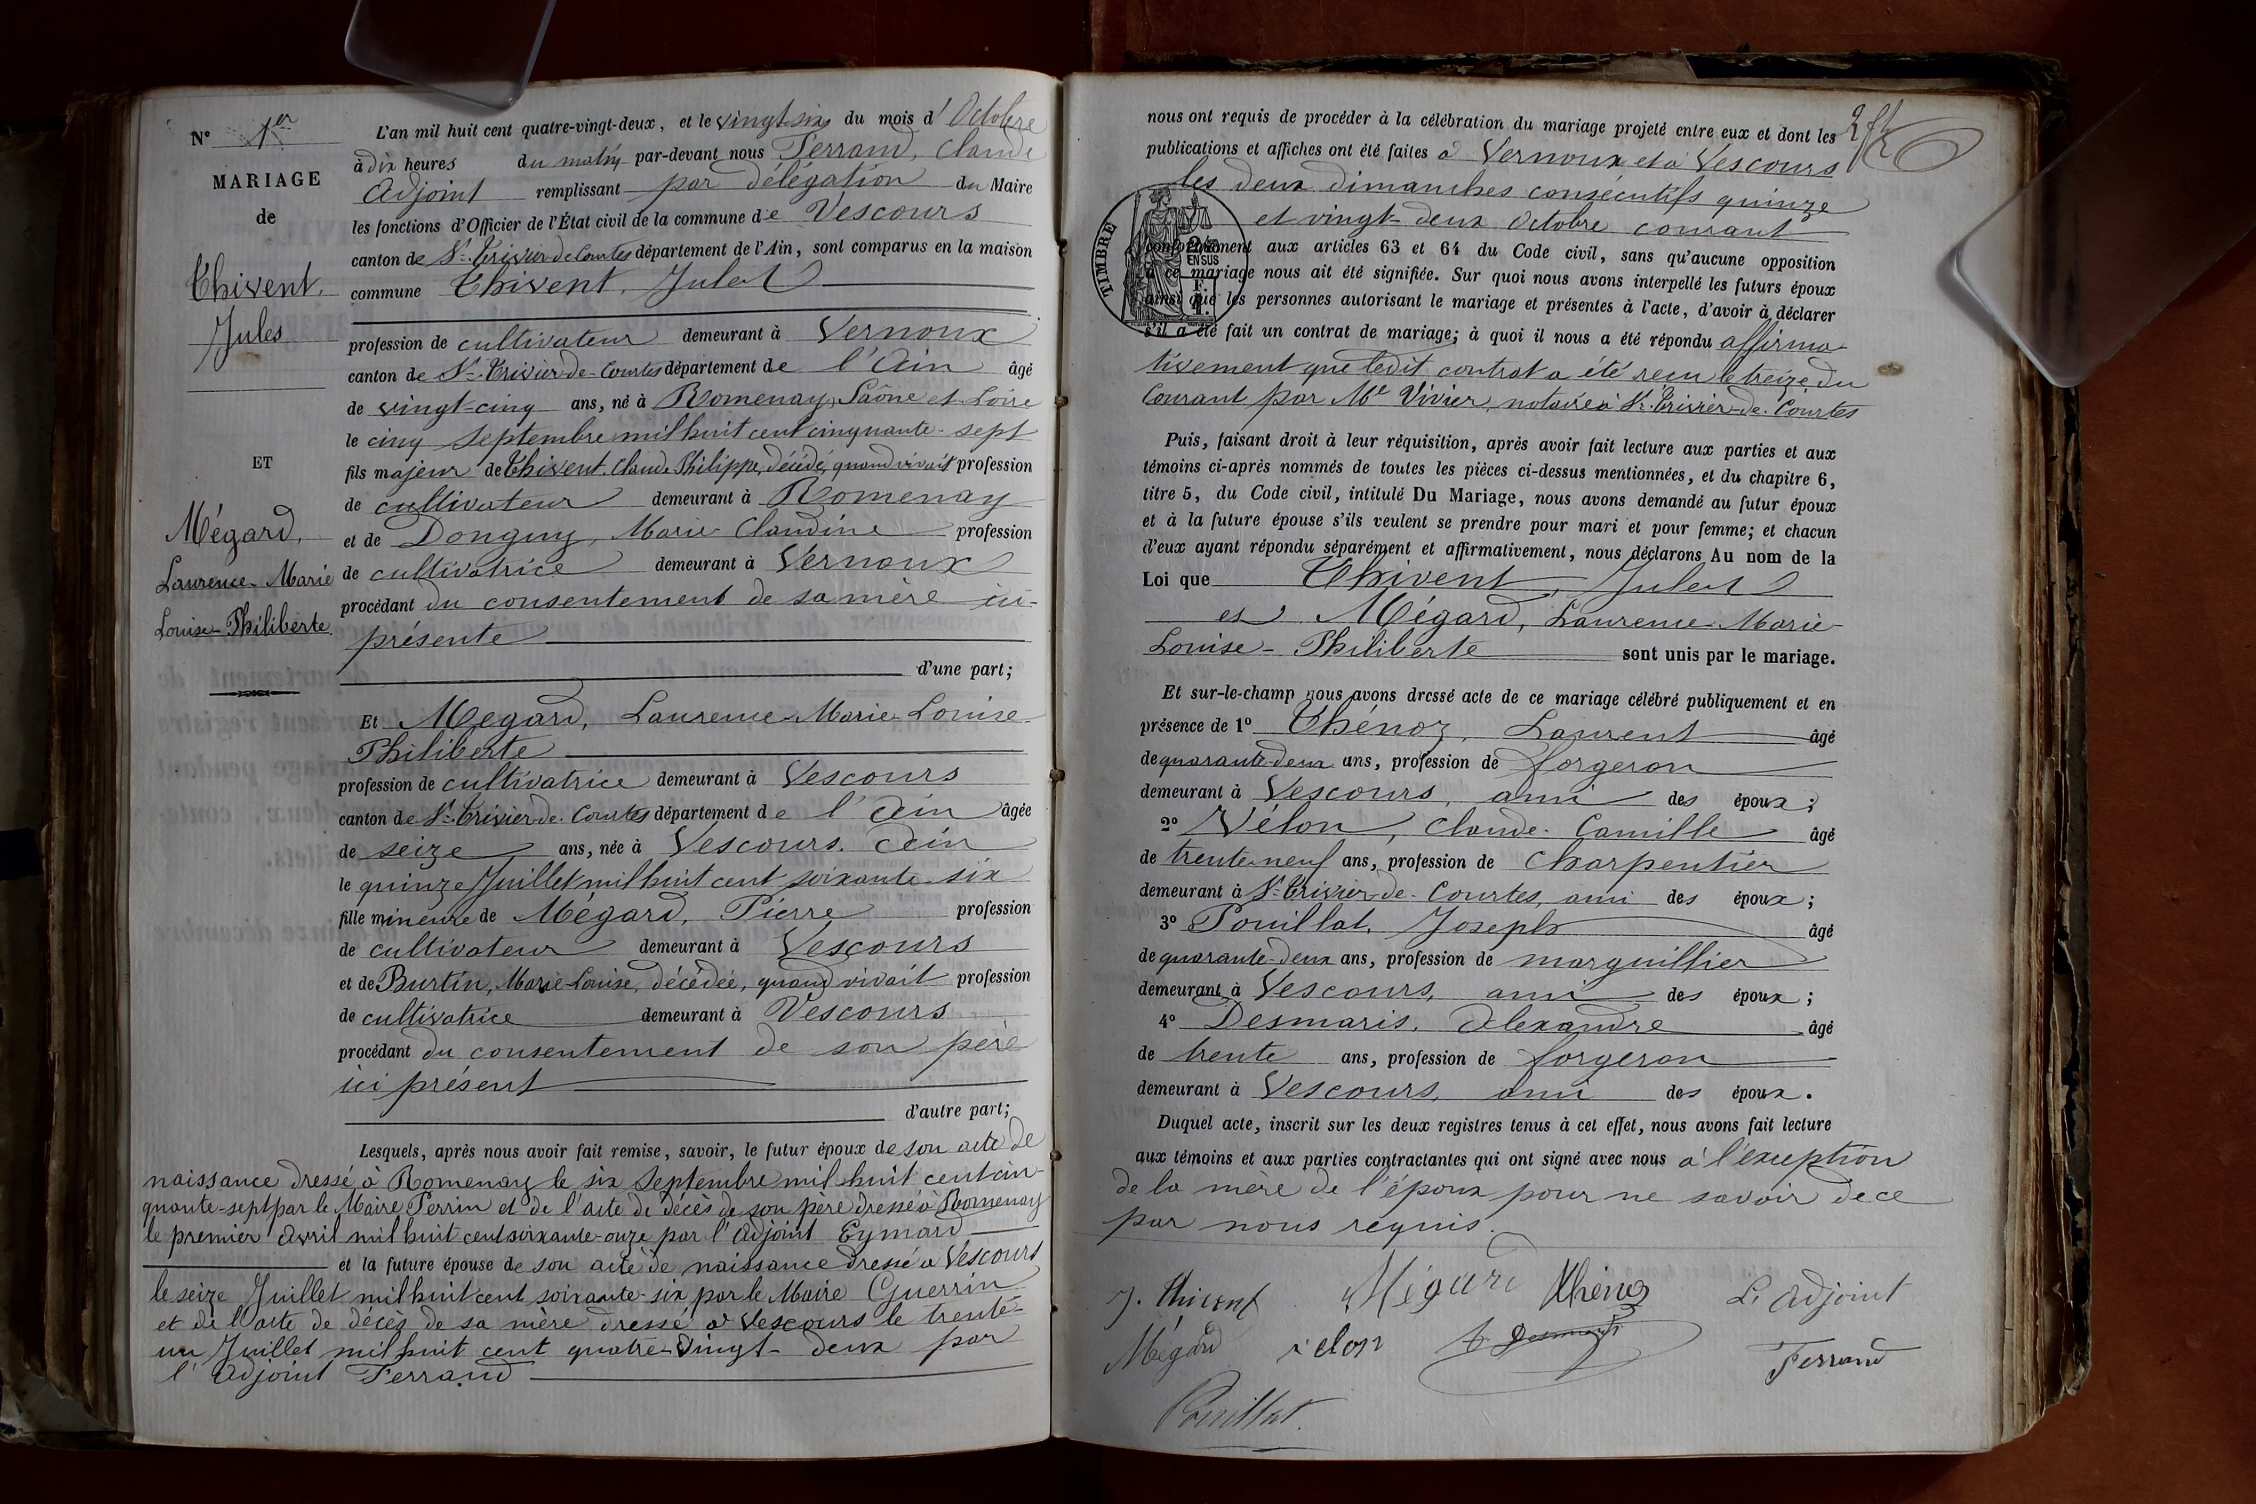 N° 1er
MARIAGE
de
Thivent,
Jules
ET
Mégard,
Laurence-Marie
Louise-Philiberte
L'an mil huit cent quatre-vingt-deux, et le vingt-six du mois d'Octobre
à dix heures du matin par-devant nous Ferrand, Claude
Adjoint remplissant par délégation du Maire
les fonctions d'Officier de l'État civil de la commune de Vescours
canton de St-Trivier de Courtes département de l'Ain, sont comparus en la maison
commune Thivent, Jules
profession de cultivateur demeurant à Vernoux
canton de St-Trivier-de-Courtes département de l'Ain âgé
de vingt-cinq ans, né à Romenay, Saône et Loire
le cinq septembre mil huit cent cinquante-sept
fils majeur de Thivent, Claude Philippe, décédé, quand vivait profession
de cultivateur demeurant à Romenay
et de Donguy, Marie Claudine profession
de cultivatrice demeurant à Vernoux
procédant du consentement de sa mère ici-
présente
d'une part;
Et Mégard, Laurence-Marie-Louise-
Philiberte
profession de cultivatrice demeurant à Vescours
canton de St-Trivier-de-Courtes département de l'Ain âgée
de seize ans, née à Vescours. Ain
le quinze Juillet mil huit cent soixante-six
fille mineure de Mégard, Pierre profession
de cultivateur demeurant à Vescours
et de Burtin, Marie-Louise, décédée, quand vivait profession
de cultivatrice demeurant à Vescours
procédant du consentement de son père
ici présent
d'autre part;
Lesquels, après nous avoir fait remise, savoir, le futur époux de son acte de
naissance dressé à Romenay le six Septembre mil huit cent cin-
quante-sept par le Maire Perrin et de l'acte de décès de son père dressé à Romenay
le premier Avril mil huit cent soixante-onze par l'Adjoint Eymard
et la future épouse de son acte de naissance dressé à Vescours
le seize Juillet mil huit cent soixante-six par le Maire Guerrin
et de l'acte de décès de sa mère dressé à Vescours le trente-
un Juillet mil huit cent quatre-vingt-deux par
l'Adjoint Ferrand
nous ont requis de procéder à la célébration du mariage projeté entre eux et dont les
publications et affiches ont été faites à Vernoux et à Vescours
les deux dimanches consécutifs quinze
et vingt-deux Octobre courant
TIMBRE
EN SUS
conformément aux articles 63 et 64 du Code civil, sans qu'aucune opposition
à ce mariage nous ait été signifiée. Sur quoi nous avons interpellé les futurs époux
ainsi que les personnes autorisant le mariage et présentes à l'acte, d'avoir à déclarer
s'il a été fait un contrat de mariage; à quoi il nous a été répondu affirma-
tivement que ledit contrat a été reçu le treize du
courant par Me Vivier, notaire à St-Trivier-de-Courtes
Puis, faisant droit à leur réquisition, après avoir fait lecture aux parties et aux
témoins ci-après nommés de toutes les pièces ci-dessus mentionnées, et du chapitre 6,
titre 5, du Code civil, intitulé Du Mariage, nous avons demandé au futur époux
et à la future épouse s'ils veulent se prendre pour mari et pour femme; et chacun
d'eux ayant répondu séparément et affirmativement, nous déclarons Au nom de la
Loi que Thivent, Jules
et Mégard, Laurence-Marie-
Louise-Philiberte sont unis par le mariage.
Et sur-le-champ nous avons dressé acte de ce mariage célébré publiquement et en
présence de 1° Thénoz, Laurent âgé
de quarante-deux ans, profession de forgeron
demeurant à Vescours, ami des époux;
2° Vélon, Claude-Camille âgé
de trente-neuf ans, profession de Charpentier
demeurant à St-Trivier-de-Courtes, ami des époux;
3° Pouillat, Joseph âgé
de quarante-deux ans, profession de marguillier
demeurant à Vescours, ami des époux;
4° Desmaris, Alexandre âgé
de trente ans, profession de forgeron
demeurant à Vescours, ami des époux.
Duquel acte, inscrit sur les deux registres tenus à cet effet, nous avons fait lecture
aux témoins et aux parties contractantes qui ont signé avec nous à l'exception
de la mère de l'époux pour ne savoir de ce
par nous requis.
J. Thivent Mégard Thénoz L'Adjoint
Mégard velon A Desmaris Ferrand
Pouillat